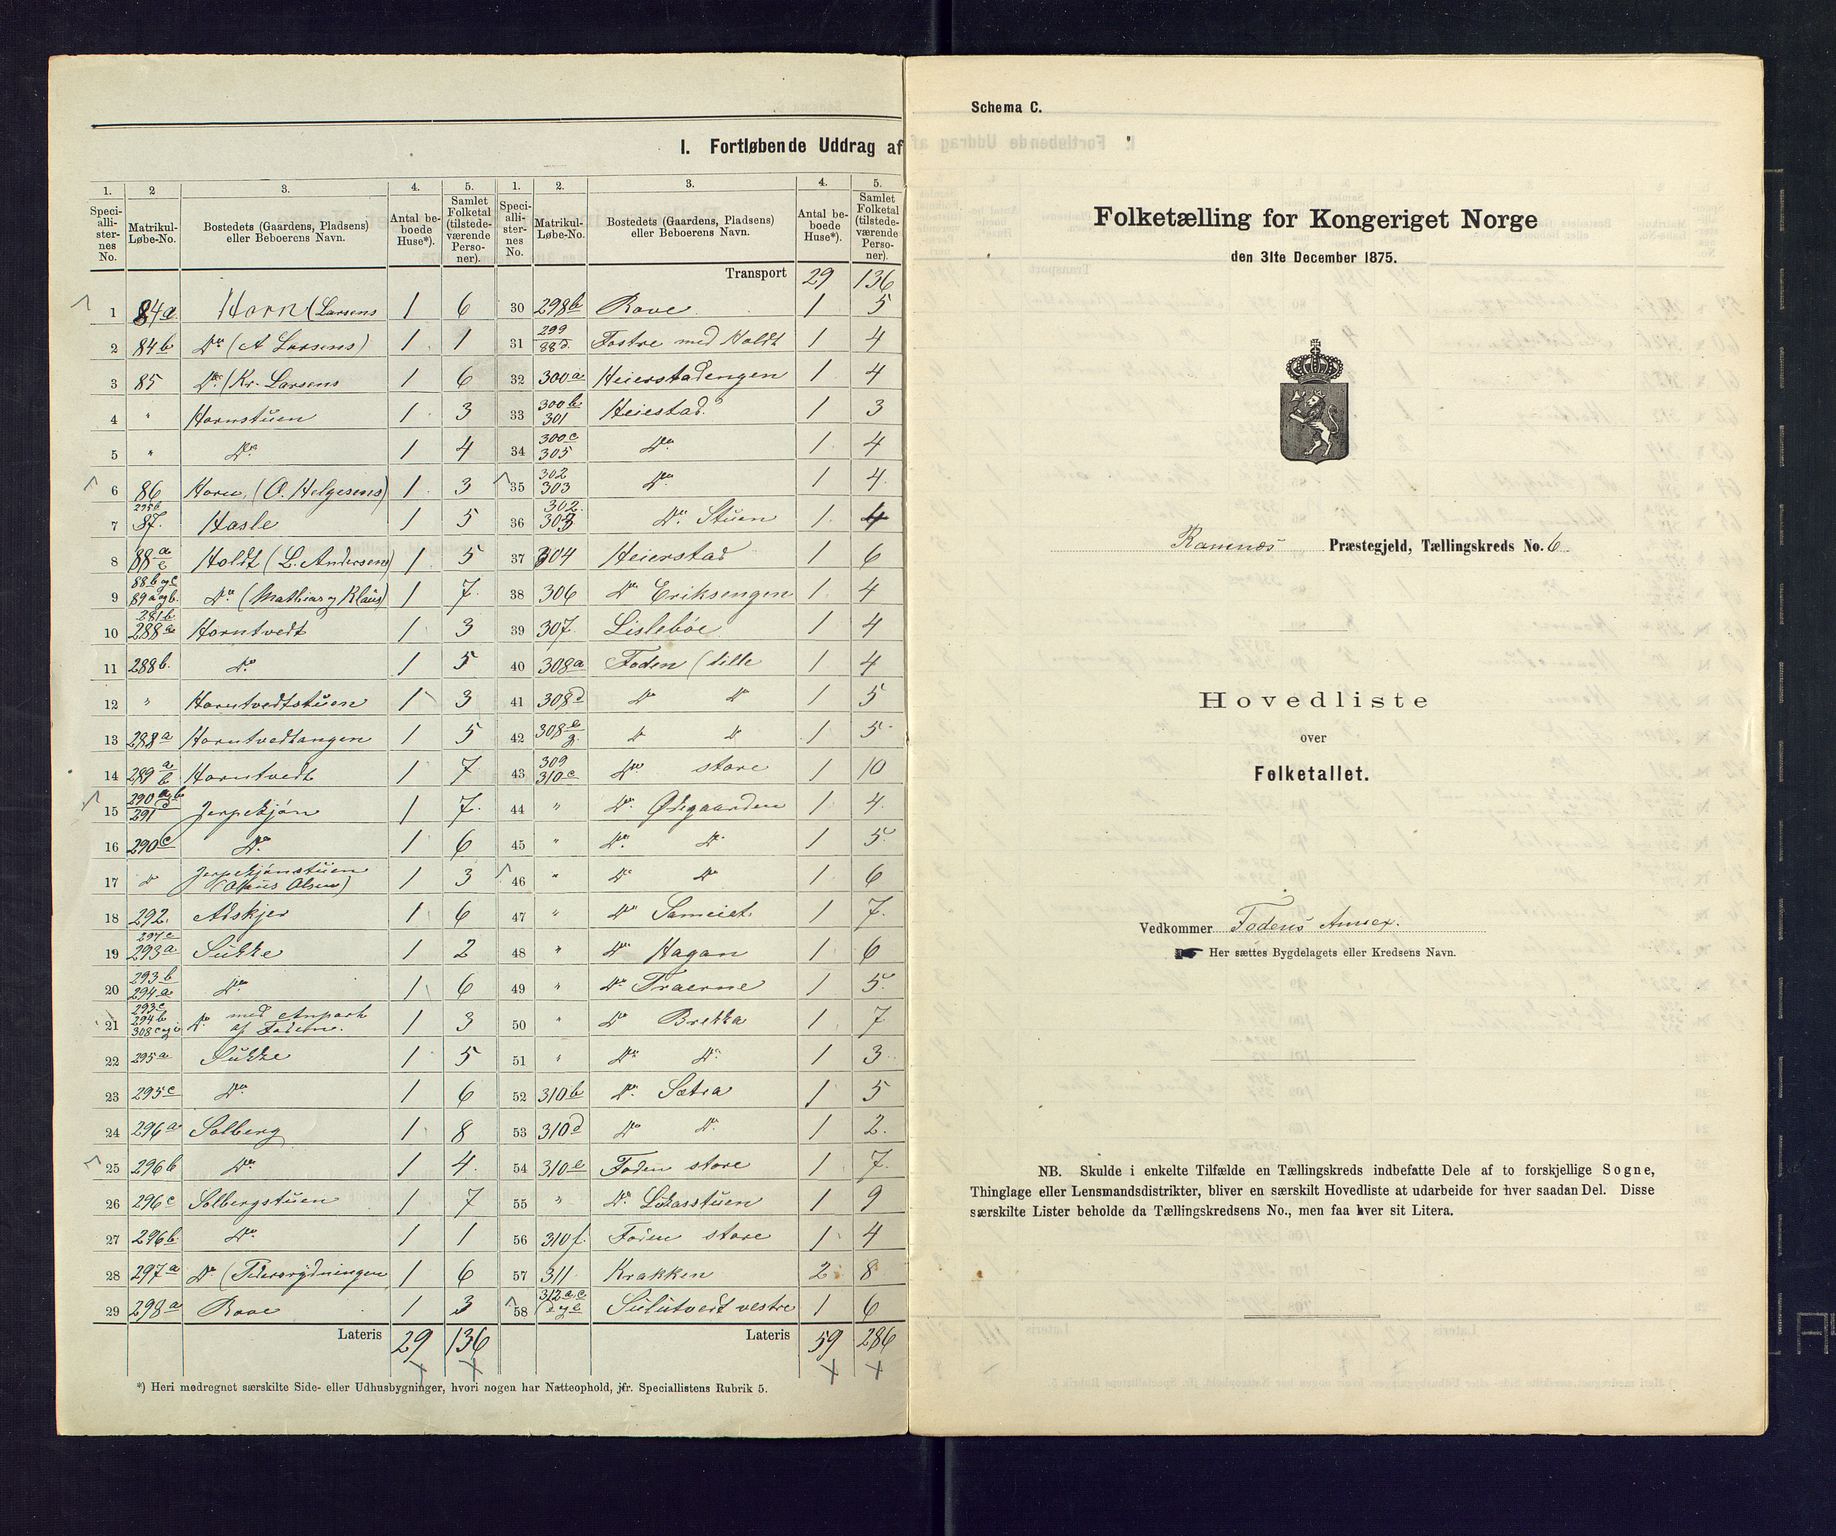 I. Fortløbende Uddrag af
1. 2 3. 4. 5. 1. 2. 3. 4. 5.
Speciallisternes No. Matrikul-Løbe-No. Bostedets (Gaardens, Pladsens) eller Beboerens Navn. Antal beboede Huse*). Samlet Folketal (tilstedeværende Personer). Speciallisternes No. Matrikul-Løbe-No. Bostedets (Gaardens, Pladsens) eller Beboerens Navn. Antal beboede Huse*). Samlet Folketal (tilstedeværende Personer).
Transport 29 136
1 84a Horn (Larsens 1 6
2 84b Do (A Larsens) 1 1
3 85 Do. (Kr. Larsens 1 6
4 " Hornstuen 1 3
5 " Do. 1 4
6 86 Horn, (O. Helgesens) 1 3
7 295b 87. Hasle 1 5
8 88a Holdt (L. Andersens) 1 5
9 88b og c 89a og b. Do (Mathias og Klaus) 1 7.
10 281b 288a Horntvedt 1 3
11 288b. Do 1 5
12 " Horntvedtstuen 1 3
13 288a Horntvedtangen 1 5
14 289a b Horntvedt 1 7
15 290 a g b d 291 Jerpekjøn 1 7.
16 290c Do. 1 6
17 " Jerpekjønstuen ( Olsen) 1 3
18 292. Adskjer 1 6
19 294c 293a Sukke 1 2
20 293b 294a Do. 1 6
21 293c 294b 308c og i Do. med Anpart af Foden. 1 3
22 295a Sukke 1 5
23 295c Do 1 6
24 296a Solberg 1 8
25 296b Do. 1 4.
26 296c Solbergstuen 1 7
27 296b. Do. 1 1
28 297a Do (Pedersrydningen 1 6
29 298a Rove 1 3
Lateris 29 136
30 298b Rove 1 5
31 299 88d. Fostre med Holdt 1 4
32 300a Heierstadengen 1 4
33 300b 301 Heiestad. 1 3
34 300c 305 Do. 1 4
35 302 303 Do. 1 4.
36 302. 303 Do. Stuen 1 4
37 304 Heierstad 1 6
38 306 Do Eriksengen 1 4
39 307. Lislebøe 1 4
40 308a Foden (lille 1 4
41 308d Do Do 1 5
42 308e g. Do Do 1 5
43 309 310c Do store 1 10
44 " Do. Ødegaarden 1 4.
45 " Do. Do. 1 5.
46 " Do Do 1 6
47 " Do Sameiet. 1 7.
48 " Do Hagan 1 6
49 " Do Traerne 1 5.
50 " Do Brekka 1 7
51 " Do Do. 1 3
52 310b Do. Sætra 1 5
53 310d Do Do. 1 2.
54 310e Foden store 1 7.
55 " Do. Lukasstuen 1 9
56 310f. Foden store 1 4
57 311 Krakken 2 8
58 312a, c d og e Sulutvedt vestre 1 6
Lateris 59 286
*) Heri medregnet særskilte Side- eller Udhusbygninger, hvori nogen har Natteophold, jfr. Speciallistens Rubrik 5.
Schema C.
Folketælling for Kongeriget Norge
den 31te December 1875.
Ramnæs Præstegjeld, Tællingskreds No. 6.
Hovedliste
over
Folketallet.
Vedkommer Fodens Annex.
Her sættes Bygdelagets eller Kredsens Navn.
NB. Skulde i enkelte Tilfælde en Tællingskreds indbefatte Dele af to forskjellige Sogne,
Thinglage eller Lensmandsdistrikter, bliver en særskilt Hovedliste at udarbeide for hver saadan Del. Disse
særskilte Lister beholde da Tællingskredsens No., men faa hver sit Litera.